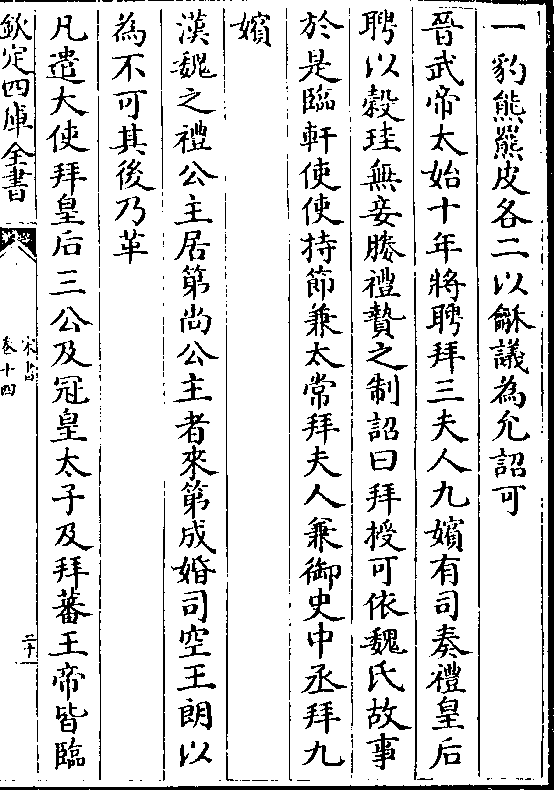 一豹熊羆皮各二以龢議為允詔可
晉武帝太始十年將聘拜三夫人九嬪有司奏禮皇后
聘以穀珪無妾媵禮贄之制詔曰拜授可依魏氏故事
於是臨軒使使持節兼太常拜夫人兼御史中丞拜九
嬪
漢魏之禮公主居第尚公主者來第成婚司空王朗以
為不可其後乃革
凡遣大使拜皇后三公及冠皇太子及拜蕃王帝皆臨
欽定四庫全書
宋書
卷十四
二十